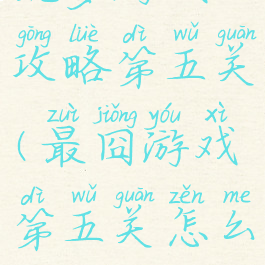 gōng lüè dì wǔ guān
攻略第五关
zuì jiǒng yóu xì
(最囧游戏
dì wǔ guān zěn me
第五关怎么